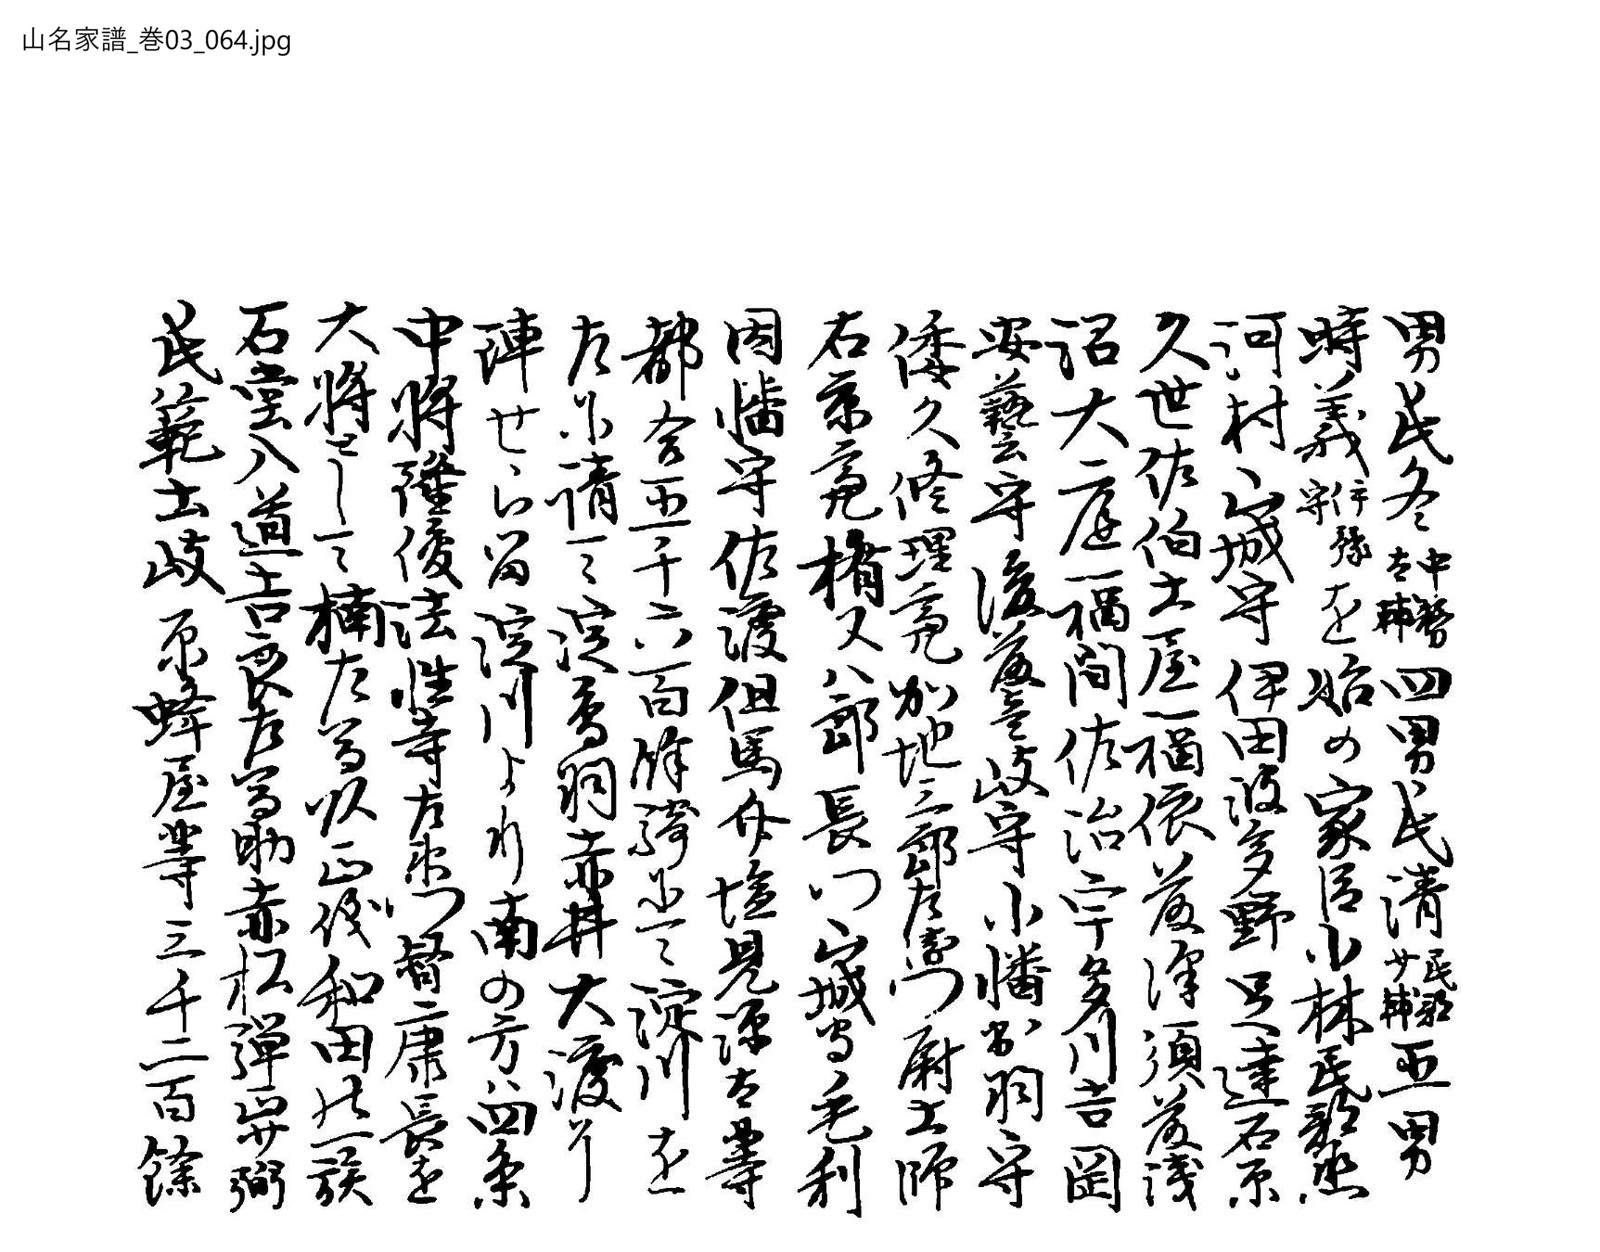 山名家譜_巻03_064.jpg
男氏冬中務大輔四男氏清民部少輔五男
時義伊豫守を始の家臣小林民部丞
河村山城守伊田波多野足達石原
久世佐伯土屋福依藤澤須藤浅
沼大庭福間佐治宇多川吉岡
安藝守後藤壱岐守小幡出羽守
倭久修理亮加地三郎左衛門尉土師
右京亮楯又八郎長門山城守毛利
因幡守佐渡但馬介塩見源太等
都合五千六百餘騎にて淀川を
左に請て淀鳥羽赤井大渡り
陣せらる淀川より南の方は四条
中将隆俊法性寺右衛門督康長を
大将として楠左馬頭正儀和田の一族
石堂入道吉良左馬助赤松弾正弼
氏範土岐原蜂屋等三千二百餘